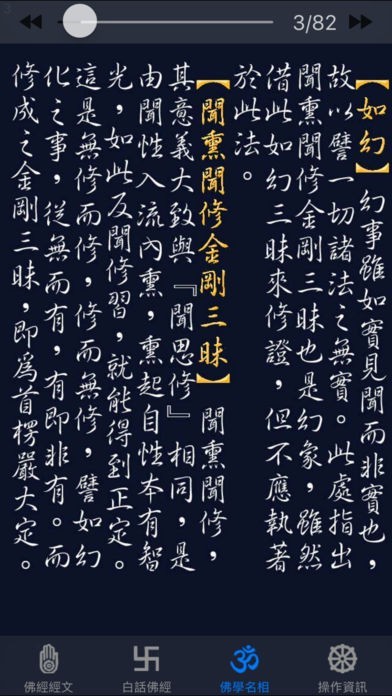 3
3/82
【如幻】幻事雖如實見聞而非實也，
故以譬一切諸法之無實。此處指出
聞熏聞修金剛三昧也是幻象，雖然
借此如幻三昧來修證，但不應執著
於此法。
【聞熏聞修金剛三昧】聞熏聞修，
其意義大致與『聞思修』相同，是
由聞性入流內熏，熏起自性本有智
光，如此反聞修習，就能得到正定。
這是無修而修，修而無修，譬如幻
化之事，從無而有，有即非有。而
修成之金剛三昧，即爲首楞嚴大定。
佛經經文 白話佛經 佛學名相 操作資訊